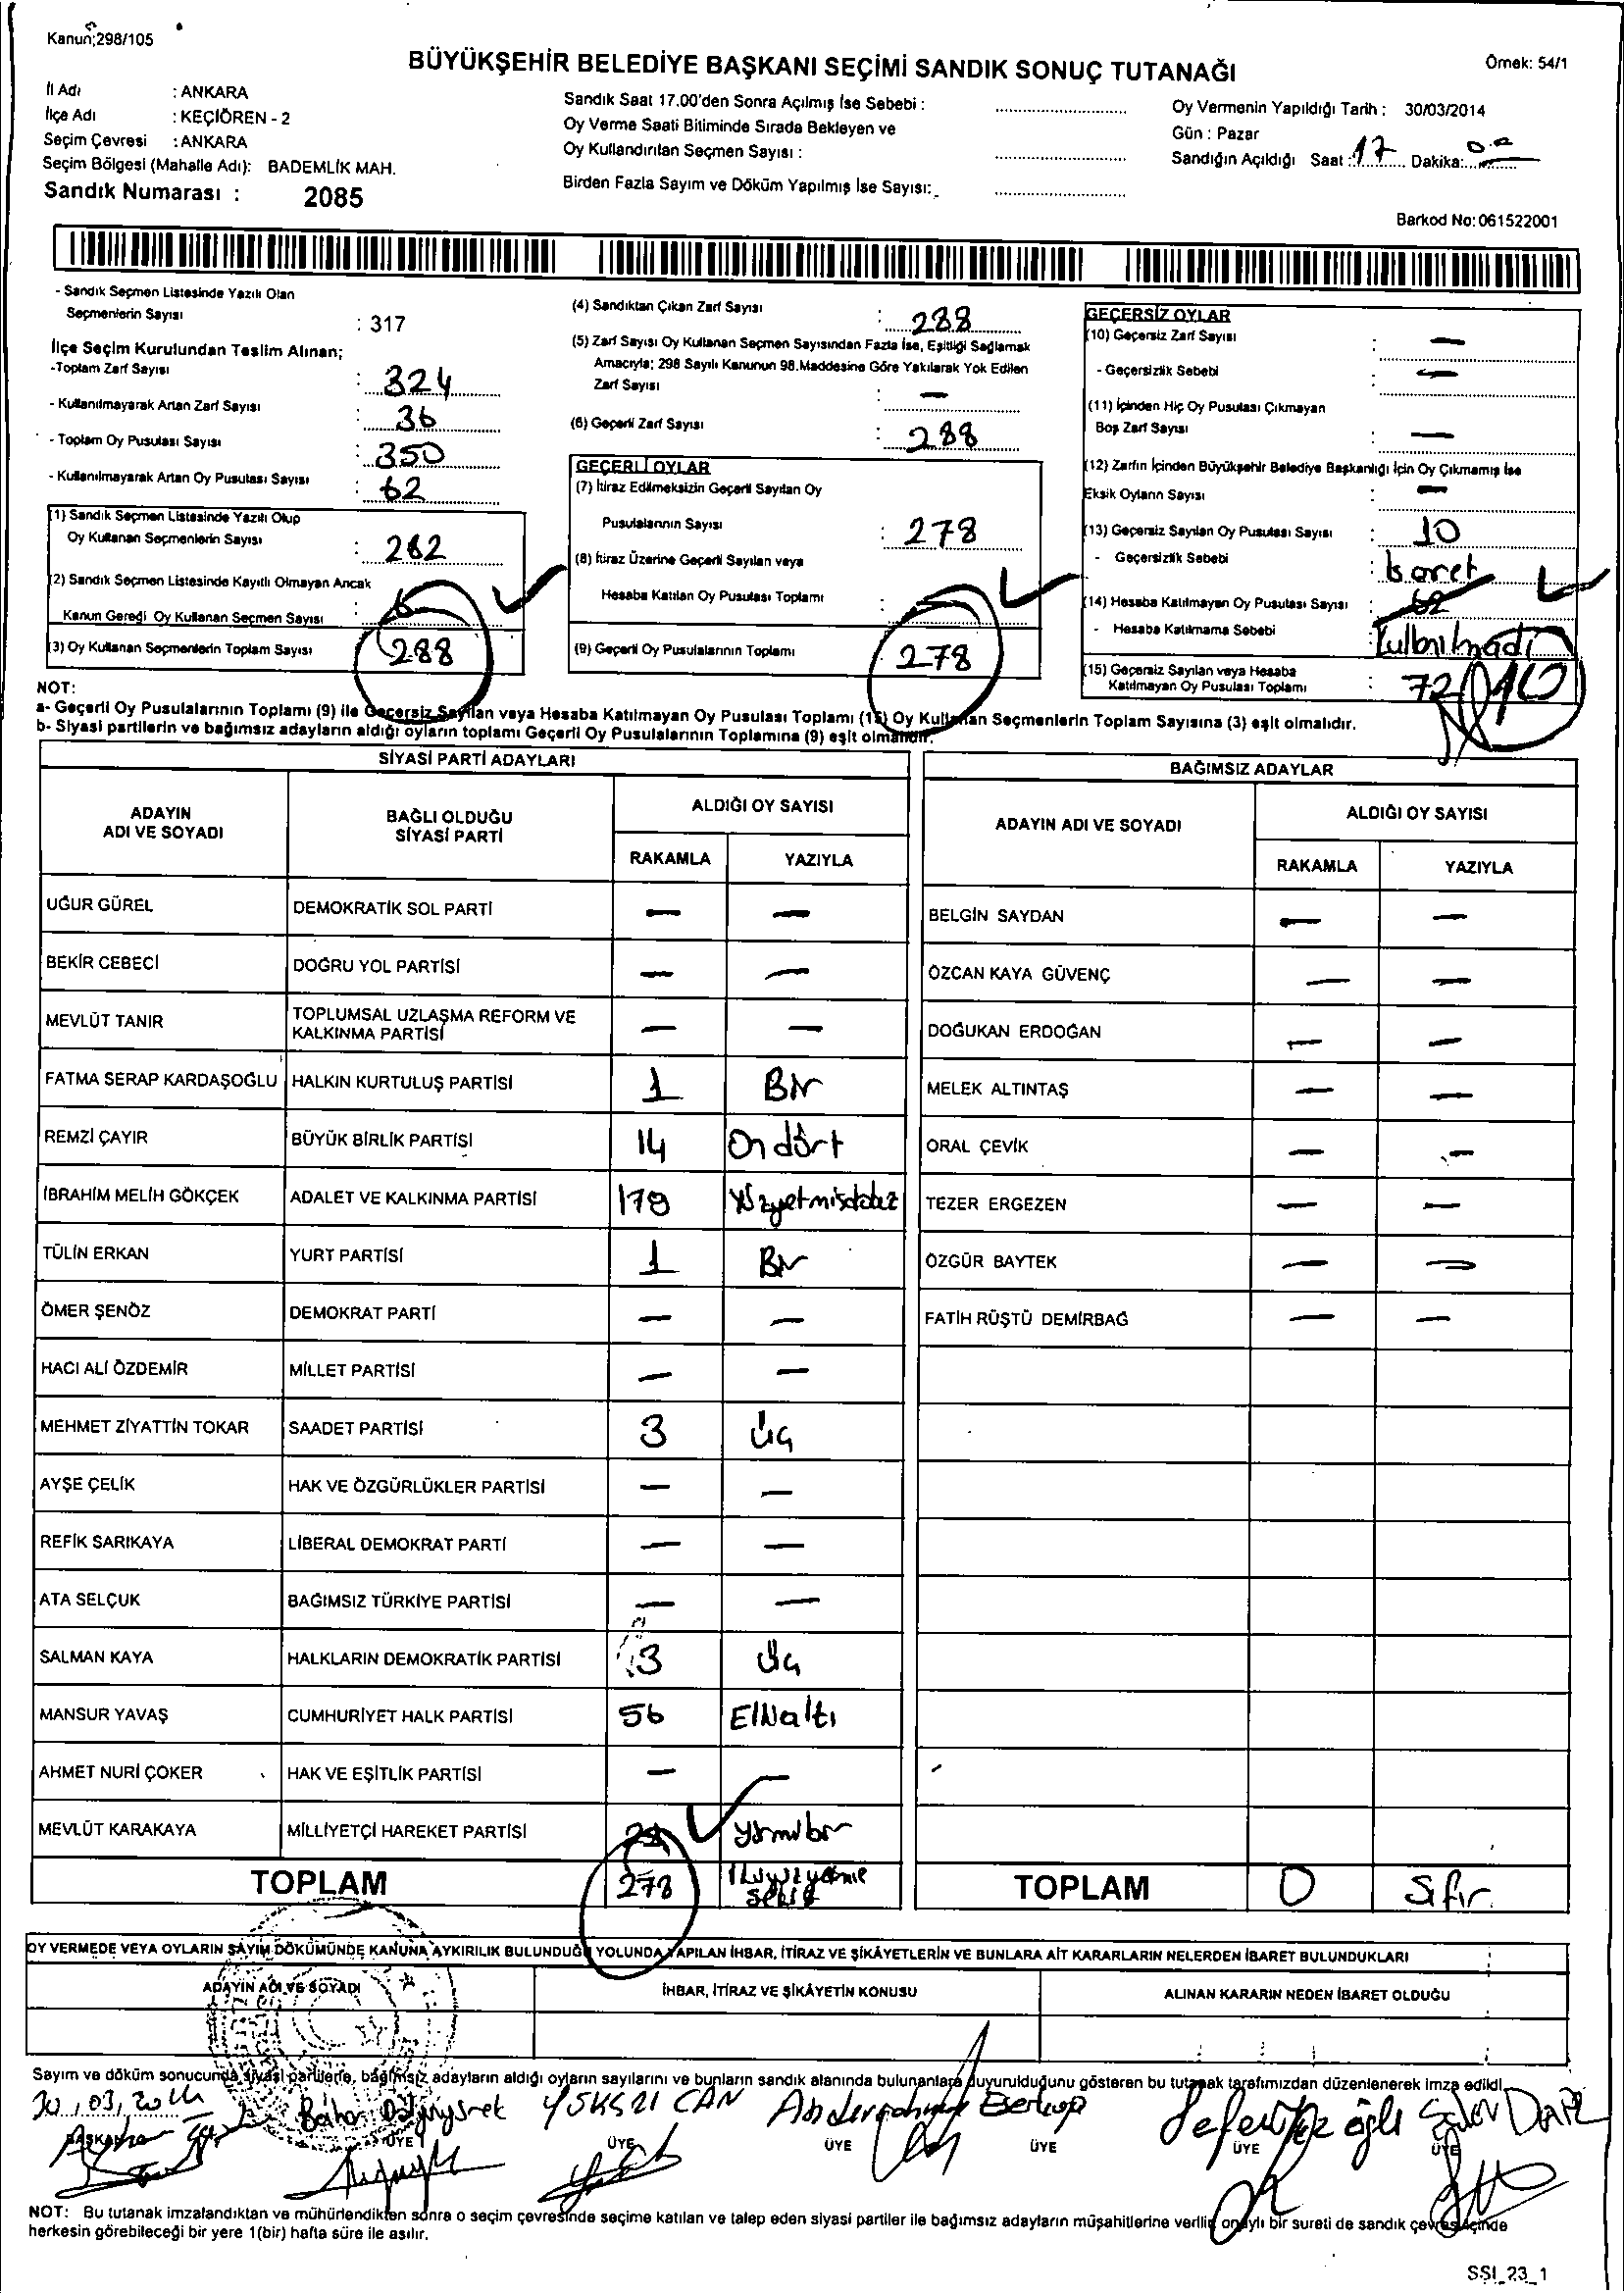 Kanun;298/105
BÜYÜKŞEHİR BELEDİYE BAŞKANI SEÇİMİ SANDIK SONUÇ TUTANAĞI
Örnek: 54/1
İl Adı : ANKARA
İlçe Adı : KEÇİÖREN - 2
Seçim Çevresi : ANKARA
Seçim Bölgesi (Mahalle Adı): BADEMLİK MAH.
Sandık Numarası : 2085
Sandık Saat 17.00'den Sonra Açılmış İse Sebebi :
Oy Verme Saati Bitiminde Sırada Bekleyen ve
Oy Kullandırılan Seçmen Sayısı :
Birden Fazla Sayım ve Döküm Yapılmış İse Sayısı:
Oy Vermenin Yapıldığı Tarih : 30/03/2014
Gün : Pazar
Sandığın Açıldığı Saat : 17 Dakika: 00
Barkod No: 061522001
- Sandık Seçmen Listesinde Yazılı Olan
Seçmenlerin Sayısı : 317
İlçe Seçim Kurulundan Teslim Alınan;
-Toplam Zarf Sayısı : 324
- Kullanılmayarak Artan Zarf Sayısı : 36
- Toplam Oy Pusulası Sayısı : 350
- Kullanılmayarak Artan Oy Pusulası Sayısı : 62
(1) Sandık Seçmen Listesinde Yazılı Olup
Oy Kullanan Seçmenlerin Sayısı : 282
(2) Sandık Seçmen Listesinde Kayıtlı Olmayan Ancak
Kanun Gereği Oy Kullanan Seçmen Sayısı : 6
(3) Oy Kullanan Seçmenlerin Toplam Sayısı : 288
(4) Sandıktan Çıkan Zarf Sayısı : 288
(5) Zarf Sayısı Oy Kullanan Seçmen Sayısından Fazla İse, Eşitliği Sağlamak
Amacıyla; 298 Sayılı Kanunun 98.Maddesine Göre Yakılarak Yok Edilen
Zarf Sayısı : —
(6) Geçerli Zarf Sayısı : 288
GEÇERLİ OYLAR
(7) İtiraz Edilmeksizin Geçerli Sayılan Oy
Pusulalarının Sayısı : 278
(8) İtiraz Üzerine Geçerli Sayılan veya
Hesaba Katılan Oy Pusulası Toplamı : —
(9) Geçerli Oy Pusulalarının Toplamı : 278
GEÇERSİZ OYLAR
(10) Geçersiz Zarf Sayısı : —
- Geçersizlik Sebebi : —
(11) İçinden Hiç Oy Pusulası Çıkmayan
Boş Zarf Sayısı : —
(12) Zarfın İçinden Büyükşehir Belediye Başkanlığı İçin Oy Çıkmamış İse
Eksik Oyların Sayısı : —
(13) Geçersiz Sayılan Oy Pusulası Sayısı : 10
- Geçersizlik Sebebi : İşaret
(14) Hesaba Katılmayan Oy Pusulası Sayısı : 62
- Hesaba Katılmama Sebebi : Kullanılmadı
(15) Geçersiz Sayılan veya Hesaba
Katılmayan Oy Pusulası Toplamı : 72 10
NOT:
a- Geçerli Oy Pusulalarının Toplamı (9) ile Geçersiz Sayılan veya Hesaba Katılmayan Oy Pusulası Toplamı (15) Oy Kullanan Seçmenlerin Toplam Sayısına (3) eşit olmalıdır.
b- Siyasi partilerin ve bağımsız adayların aldığı oyların toplamı Geçerli Oy Pusulalarının Toplamına (9) eşit olmalıdır.
SİYASİ PARTİ ADAYLARI
ADAYIN ADI VE SOYADI BAĞLI OLDUĞU SİYASİ PARTİ ALDIĞI OY SAYISI
RAKAMLA YAZIYLA
UĞUR GÜREL DEMOKRATİK SOL PARTİ — —
BEKİR CEBECİ DOĞRU YOL PARTİSİ — —
MEVLÜT TANIR TOPLUMSAL UZLAŞMA REFORM VE KALKINMA PARTİSİ — —
FATMA SERAP KARDAŞOĞLU HALKIN KURTULUŞ PARTİSİ 1 Bir
REMZİ ÇAYIR BÜYÜK BİRLİK PARTİSİ 14 Ondört
İBRAHİM MELİH GÖKÇEK ADALET VE KALKINMA PARTİSİ 179 Yüzyetmişdokuz
TÜLİN ERKAN YURT PARTİSİ 1 Bir
ÖMER ŞENÖZ DEMOKRAT PARTİ — —
HACI ALİ ÖZDEMİR MİLLET PARTİSİ — —
MEHMET ZİYATTİN TOKAR SAADET PARTİSİ 3 Üç
AYŞE ÇELİK HAK VE ÖZGÜRLÜKLER PARTİSİ — —
REFİK SARIKAYA LİBERAL DEMOKRAT PARTİ — —
ATA SELÇUK BAĞIMSIZ TÜRKİYE PARTİSİ — —
SALMAN KAYA HALKLARIN DEMOKRATİK PARTİSİ 3 Üç
MANSUR YAVAŞ CUMHURİYET HALK PARTİSİ 56 Ellialtı
AHMET NURİ ÇOKER HAK VE EŞİTLİK PARTİSİ — —
MEVLÜT KARAKAYA MİLLİYETÇİ HAREKET PARTİSİ 21 yirmibir
TOPLAM 278
BAĞIMSIZ ADAYLAR
ADAYIN ADI VE SOYADI ALDIĞI OY SAYISI
RAKAMLA YAZIYLA
BELGİN SAYDAN — —
ÖZCAN KAYA GÜVENÇ — —
DOĞUKAN ERDOĞAN — —
MELEK ALTINTAŞ — —
ORAL ÇEVİK — —
TEZER ERGEZEN — —
ÖZGÜR BAYTEK — —
FATİH RÜŞTÜ DEMİRBAĞ — —
TOPLAM 0 Sıfır.
OY VERMEDE VEYA OYLARIN SAYIM DÖKÜMÜNDE KANUNA AYKIRILIK BULUNDUĞU YOLUNDA YAPILAN İHBAR, İTİRAZ VE ŞİKÂYETLERİN VE BUNLARA AİT KARARLARIN NELERDEN İBARET BULUNDUKLARI
ADAYIN ADI VE SOYADI İHBAR, İTİRAZ VE ŞİKÂYETİN KONUSU ALINAN KARARIN NEDEN İBARET OLDUĞU
Sayım ve döküm sonucunda siyasi partilerle, bağımsız adayların aldığı oyların sayılarını ve bunların sandık alanında bulunanlara duyurulduğunu gösteren bu tutanak tarafımızdan düzenlenerek imza edildi.
30.03.2014
BAŞKAN ÜYE ÜYE ÜYE ÜYE ÜYE ÜYE
NOT: Bu tutanak imzalandıktan ve mühürlendikten sonra o seçim çevresinde seçime katılan ve talep eden siyasi partiler ile bağımsız adayların müşahitlerine verilir, onaylı bir sureti de sandık çevresi içinde
herkesin görebileceği bir yere 1(bir) hafta süre ile asılır.
SSI_23_1